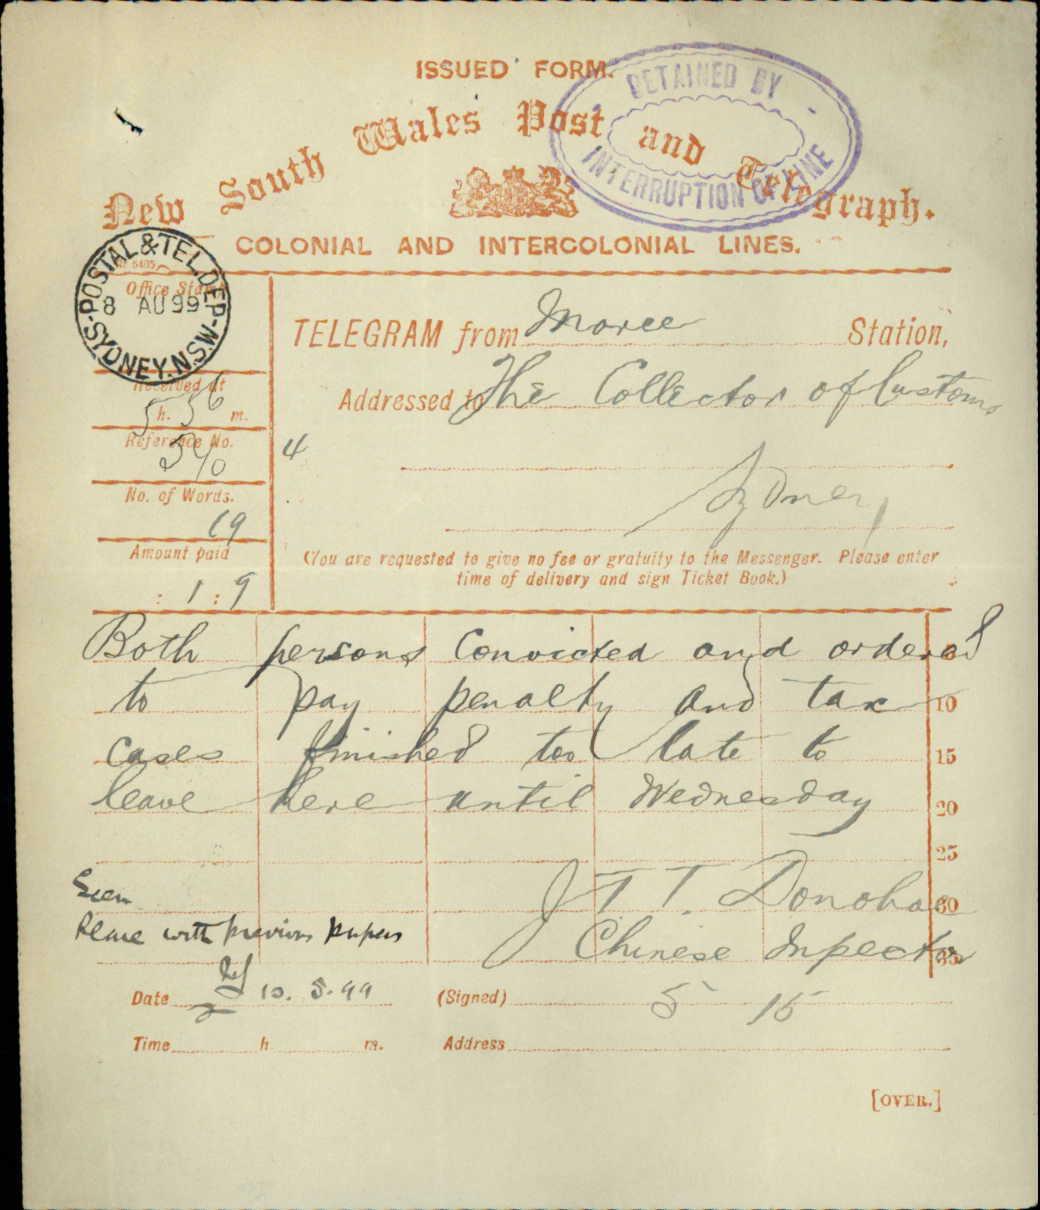 ISSUED FORM.
DETAINED BY
INTERRUPTION OF LINE
New South Wales Post and Telegraph.
COLONIAL AND INTERCOLONIAL LINES.
Office Stamp
POSTAL & TEL. DEP
8 AU 99
SYDNEY. N.S.W
TELEGRAM from Moree Station,
Received at
5 h. 56 m.
Addressed to The Collector of Customs
Reference No.
4
Sydney
No. of Words.
19
Amount paid
: 1 : 9
(You are requested to give no fee or gratuity to the Messenger. Please enter
time of delivery and sign Ticket Book.)
Both persons convicted and ordered
to pay penalty and tax 10
cases finished too late to 15
leave here until Wednesday 20
25
J T T. Donohoe 30
Chinese Inspector 35
Seen
Place with previous papers
Date 10.8.99 (Signed) 5 15
Time h m. Address
[OVER.]